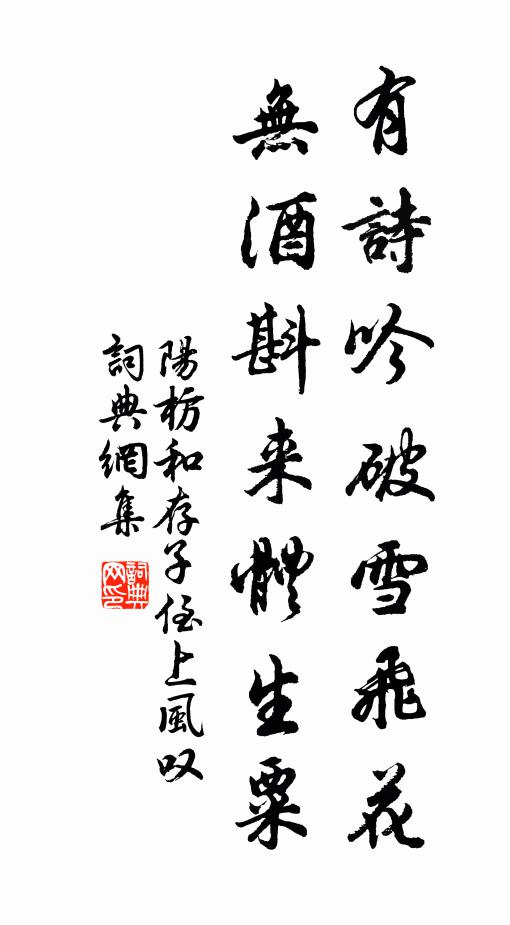 有詩吟破雪飛花
無酒斟来體生粟
陽枋和存子侄上風叹
詞典網集
詞典網印